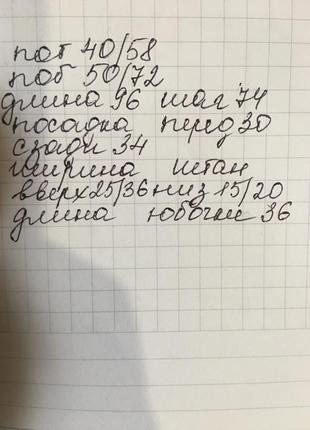 пот 40/58
поб 50/72
длина 96 шаг 74
посадка перед 30
сзади 34
ширина штан
вверх 25/36 низ 15/20
длина юбочки 36